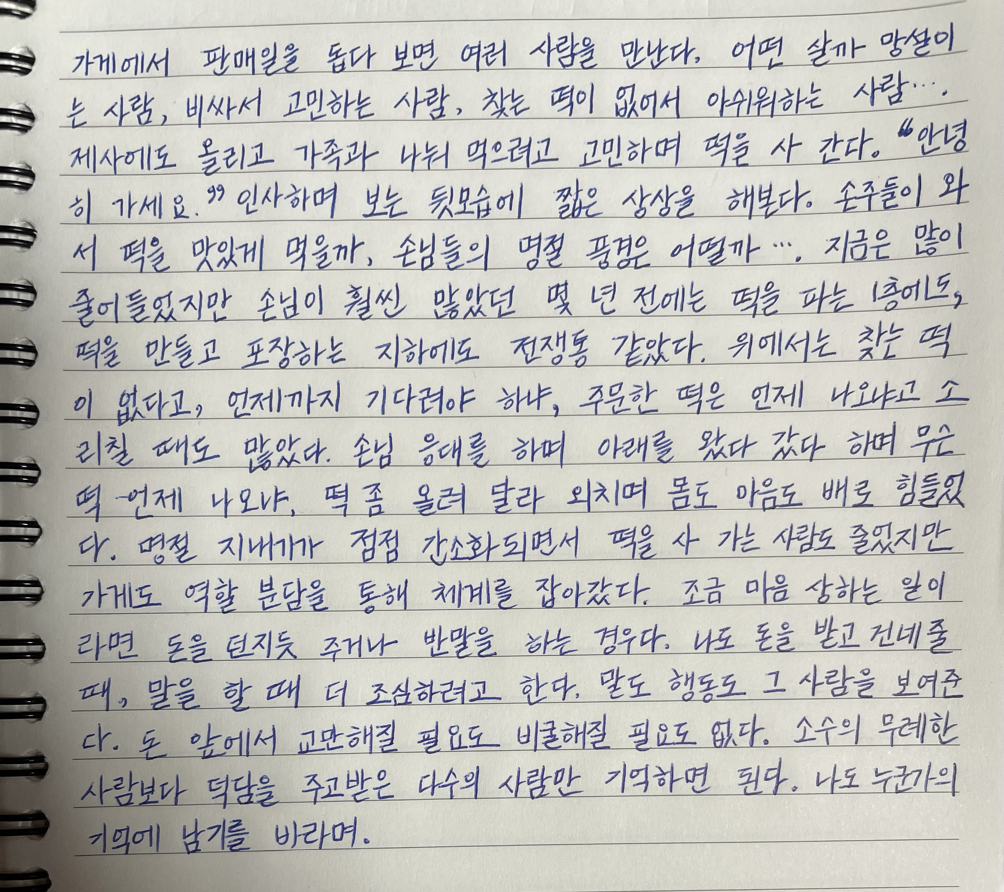 가게에서 판매일을 돕다 보면 여러 사람을 만난다. 어떤 살까 망설이
는 사람, 비싸서 고민하는 사람, 찾는 떡이 없어서 아쉬워하는 사람….
제사에도 올리고 가족과 나눠 먹으려고 고민하며 떡을 사 간다. “안녕
히 가세요.” 인사하며 보는 뒷모습에 짧은 상상을 해본다. 손주들이 와
서 떡을 맛있게 먹을까, 손님들의 명절 풍경은 어떨까 …. 지금은 많이
줄어들었지만 손님이 훨씬 많았던 몇 년 전에는 떡을 파는 1층에도,
떡을 만들고 포장하는 지하에도 전쟁통 같았다. 위에서는 찾는 떡
이 없다고, 언제까지 기다려야 하냐, 주문한 떡은 언제 나오냐고 소
리칠 때도 많았다. 손님 응대를 하며 아래를 왔다 갔다 하며 무슨
떡 언제 나오냐, 떡 좀 올려 달라 외치며 몸도 마음도 배로 힘들었
다. 명절 지내기가 점점 간소화되면서 떡을 사 가는 사람도 줄었지만
가게도 역할 분담을 통해 체계를 잡아갔다. 조금 마음 상하는 일이
라면 돈을 던지듯 주거나 반말을 하는 경우다. 나도 돈을 받고 건네줄
때, 말을 할 때 더 조심하려고 한다. 말도 행동도 그 사람을 보여준
다. 돈 앞에서 교만해질 필요도 비굴해질 필요도 없다. 소수의 무례한
사람보다 덕담을 주고받은 다수의 사람만 기억하면 된다. 나도 누군가의
기억에 남기를 바라며.